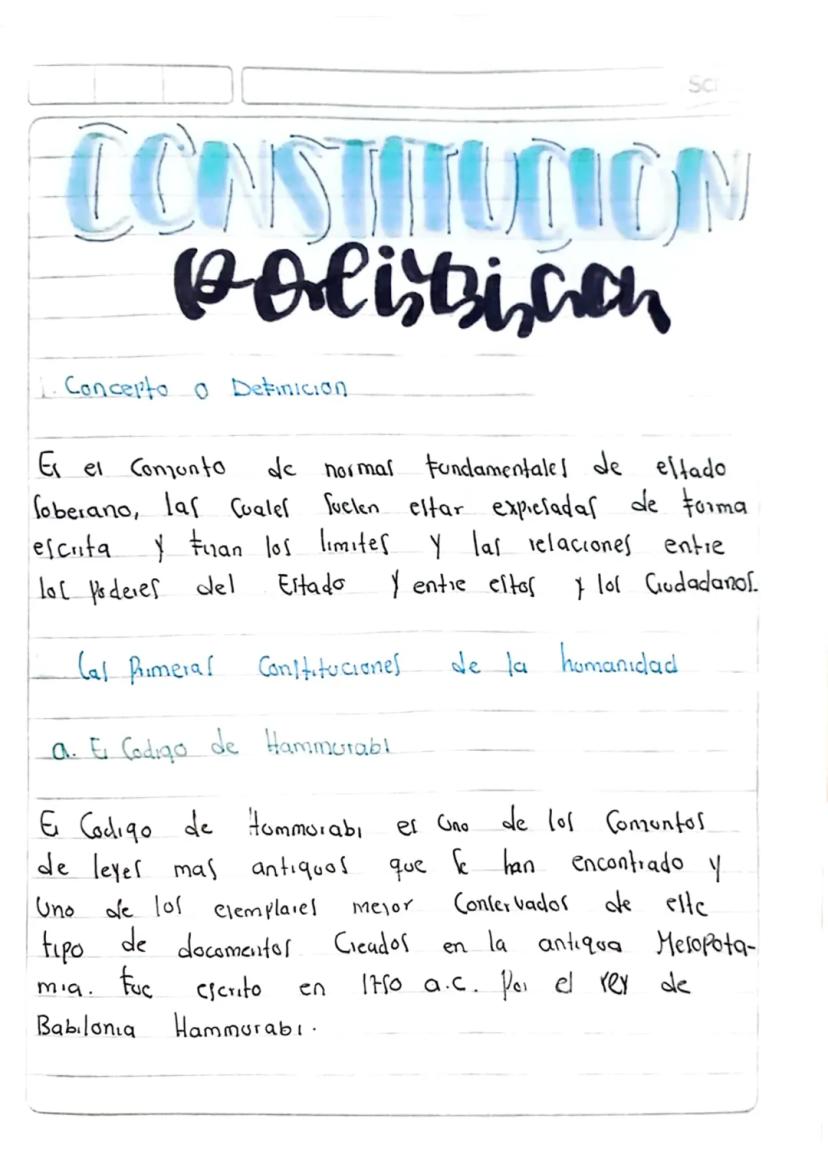 Sc
CONSTITUCION
Politica
1. Concepto o Definicion
Es el Conjunto de normas fundamentales de estado
Soberano, las cuales suelen estar expresadas de forma
escrita y fijan los limites y las relaciones entre
los Poderes del Estado y entre estos y los Ciudadanos.
Las Primeras Constituciones de la humanidad
a. El Codigo de Hammurabi
El Codigo de Hammurabi es uno de los Conjuntos
de leyes mas antiguos que se han encontrado y
Uno de los ejemplares mejor Conservados de este
tipo de documentos Creados en la antigua Mesopota-
mia. Fue escrito en 1750 a.c. Por el rey de
Babilonia Hammurabi.